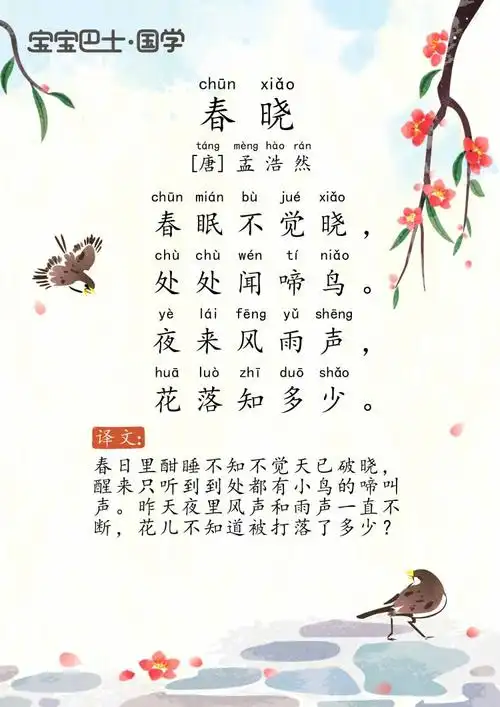 宝宝巴士·国学
chūn xiǎo
春晓
táng mèng hào rán
[唐]孟浩然
chūn mián bù jué xiǎo
春眠不觉晓，
chù chù wén tí niǎo
处处闻啼鸟。
yè lái fēng yǔ shēng
夜来风雨声，
huā luò zhī duō shǎo
花落知多少。
译文:
春日里酣睡不知不觉天已破晓，
醒来只听到到处都有小鸟的啼叫
声。昨天夜里风声和雨声一直不
断，花儿不知道被打落了多少？